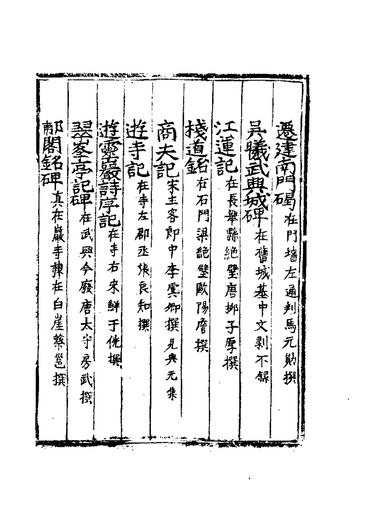 遷建南門碑 碣在門墻左通判馬元勛撰
吳曦武興城碑 在舊城基中文剥不錄
江運記 在長舉縣絶壁唐柳子厚撰
棧道銘 在石門梁壁歐陽詹撰
商夫記 宋主客郎中李虞卿撰見興元集
遊寺記 在寺左郡丞張良知撰
遊靈巖詩序記 在寺右宋鮮于侁撰
翠峯亭記碑 在武興今廢唐太守房武撰
郙閣銘碑 真在巖寺隷在白崖蔡邕撰